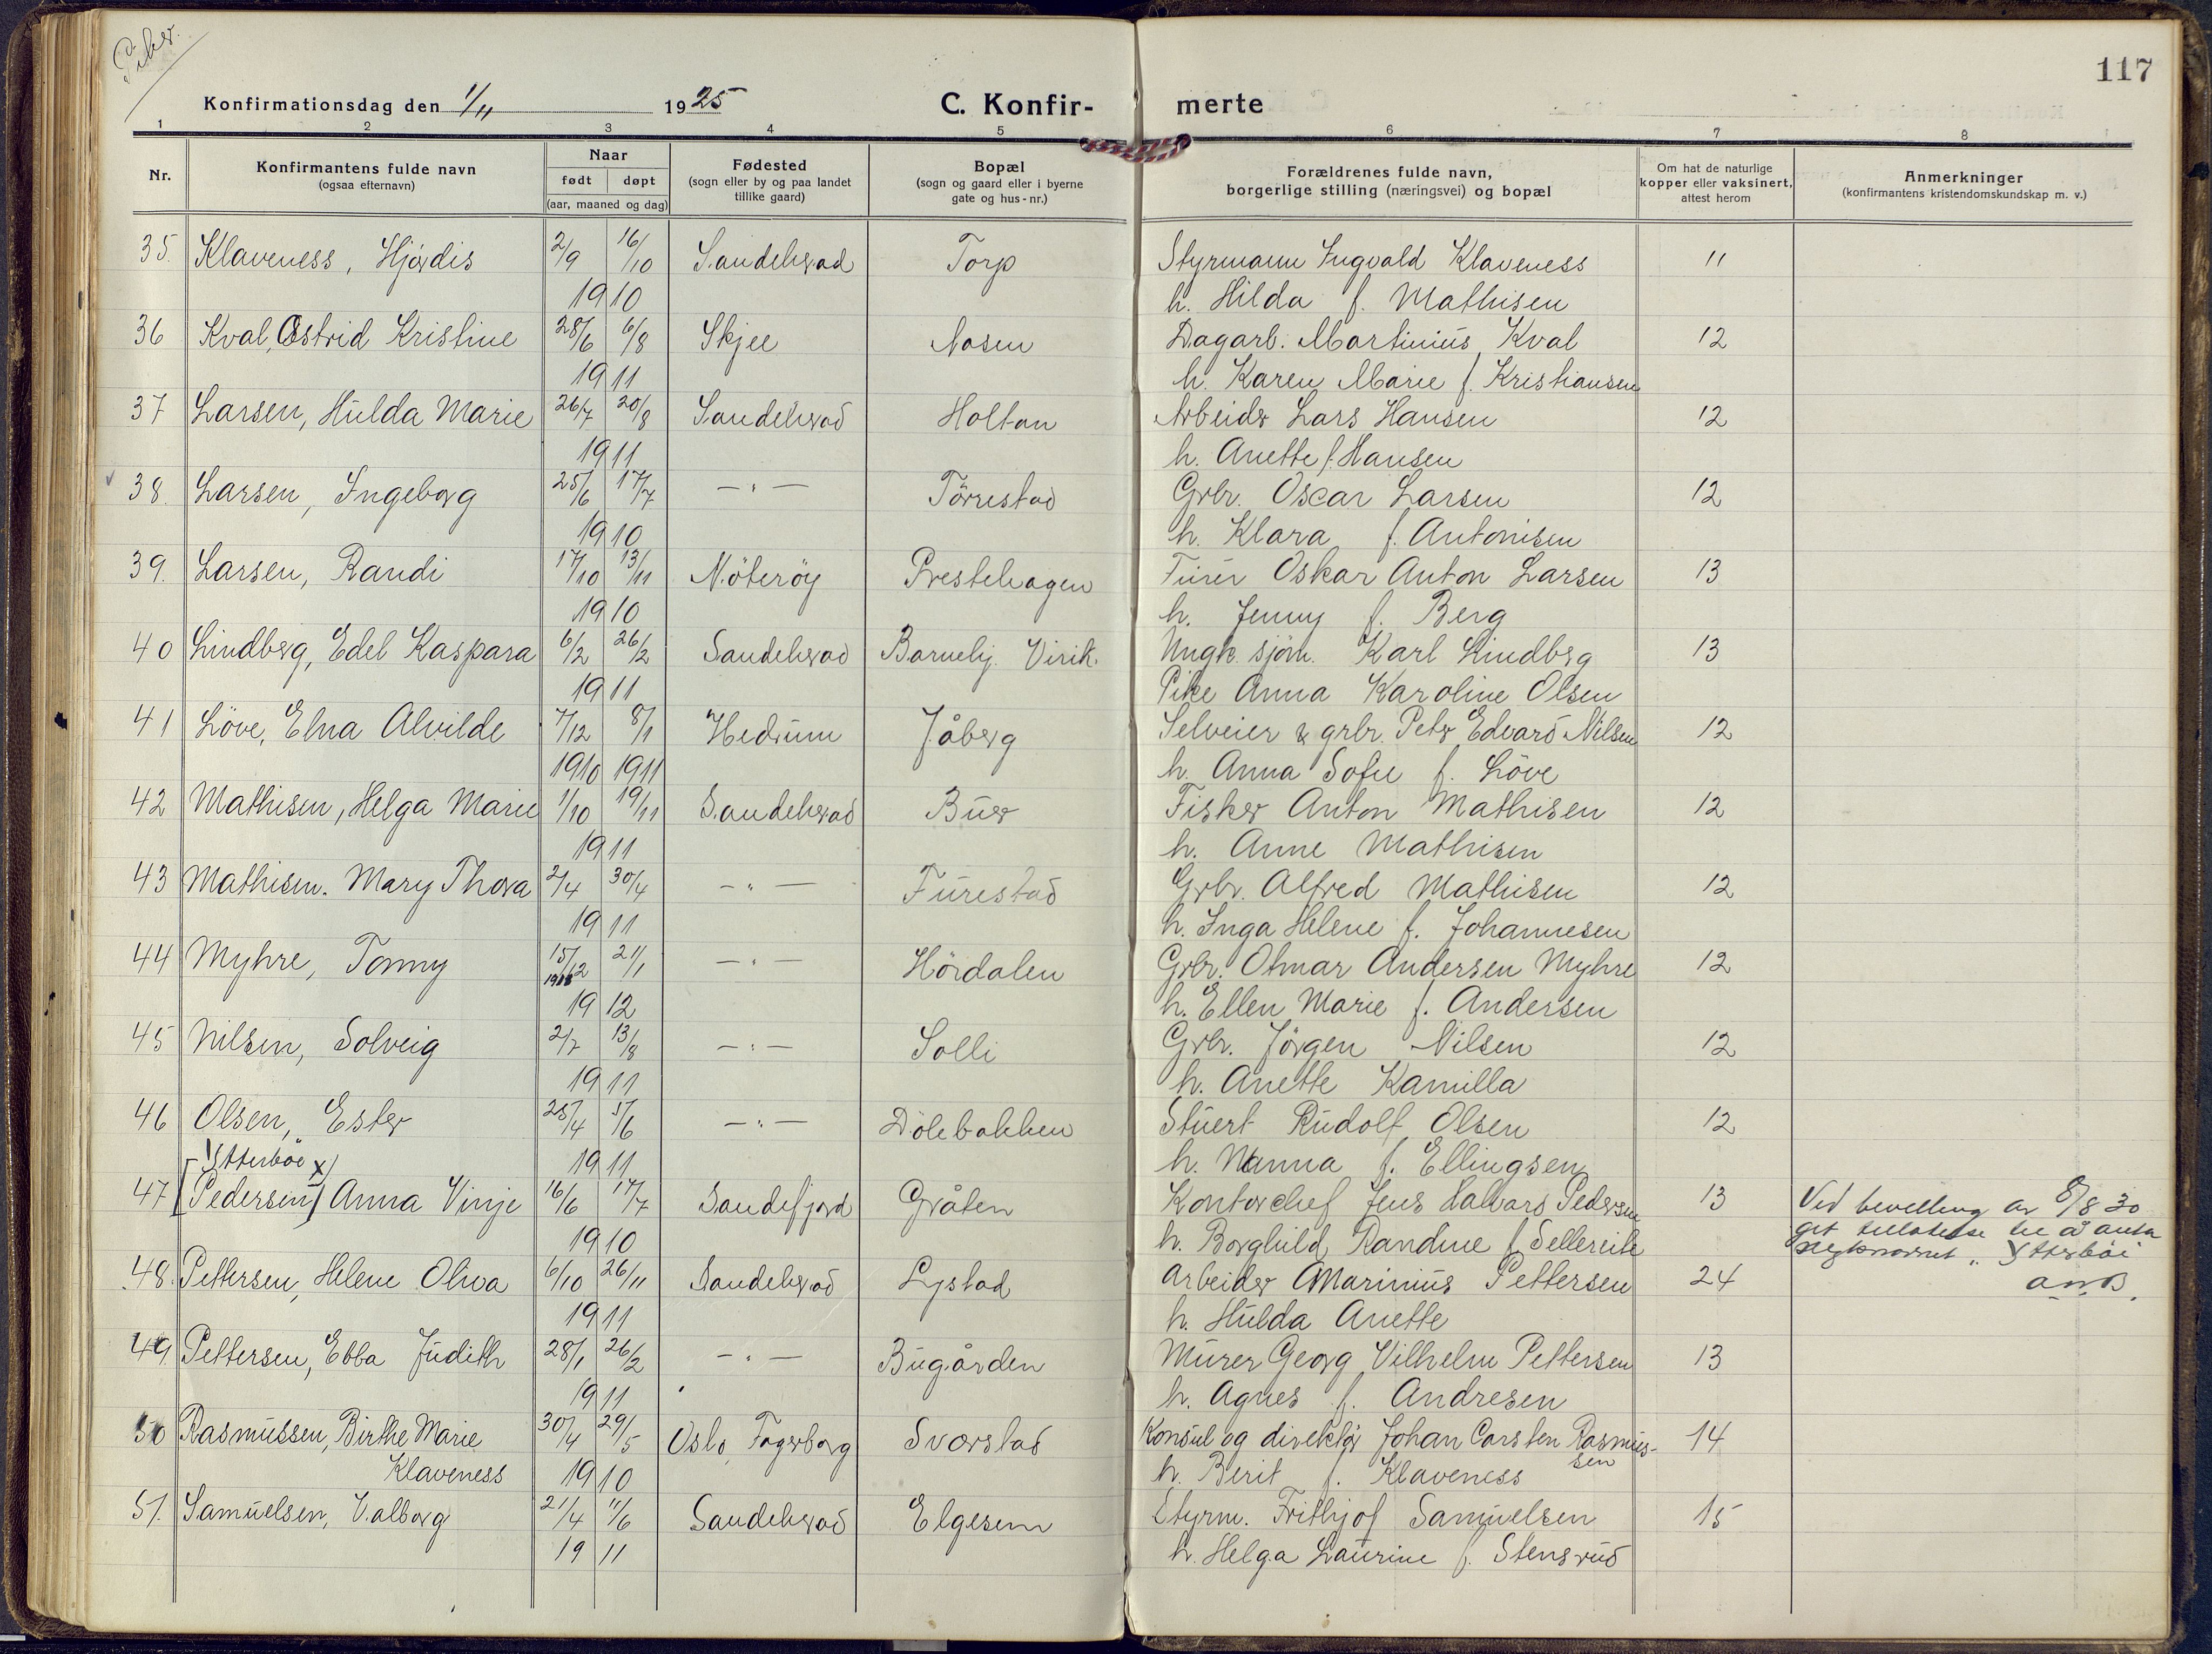 Piker.
117
Konfirmationsdag den 1/11 1925 C. Konfir- merte
1 2 3 4 5 6 7 8
Nr.
Konfirmantens fulde navn
(ogsaa efternavn)
Naar
født døpt
(aar, maaned og dag)
Fødested
(sogn eller by og paa landet
tillike gaard)
Bopæl
(sogn og gaard eller i byerne
gate og hus-nr.)
Forældrenes fulde navn,
borgerlige stilling (næringsvei) og bopæl
Om hat de naturlige
kopper eller vaksinert,
attest herom
Anmerkninger
(konfirmantens kristendomskundskap m. v.)
35. Klaveness, Hjørdis 2/9 16/10 Sandeherad Torp Styrmann Ingvald Klaveness 11
1910 h. Hilda f. Mathisen
36 Kval, Astrid Kristine 28/6 6/8 Skjee Nosen Dagarb. Martinius Kval 12
1911 h. Karen Marie f. Kristiansen
37 Larsen, Hulda Marie 26/7 20/8 Sandeherad Holtan Arbeider Lars Hansen 12
1911 h. Anette f. Hansen
38. Larsen, Ingeborg 25/6 17/7 — " — Törrestad Grbr. Oscar Larsen 12
1910 h. Klara f. Antonisen
39. Larsen, Randi 17/10 13/11 Nöteröy Prestehagen Furer Oskar Anton Larsen 13
1910 h. Jenny f. Berg
40 Lindberg, Edel Kaspara 6/2 26/2 Sandeherad Barnehj. Virik. Ungk. sjöm. Karl Lindberg 13
1911 Pike Anna Karoline Olsen
41 Löve, Elna Alvilde 7/12 8/1 Hedrum Jåberg Selveier & grbr. Peter Edvard Nilsen 12
1910 1911 h. Anna Sofie f. Löve
42 Mathisen, Helga Marie 1/10 19/11 Sandeherad Buer Fisker Anton Mathisen 12
1911 h. Anne Mathisen
43 Mathisen. Mary Thora 2/4 30/4 — " — Furestad Grbr. Alfred Mathisen 12
1911 h. Inga Helene f. Johannesen
44 Myhre, Tonny 15/12 21/1 — " — Hördalen Grbr. Otmar Andersen Myhre 12
1912 h. Ellen Marie f. Andersen
45 Nilsen, Solveig 2/7 13/8 — " — Solli Grbr. Jörgen Nilsen 12
1911 h. Anette Kamilla
46 Olsen, Ester 25/4 5/6 — " — Dölebakken Stuert Rudolf Olsen 12
Ytterböe x) 1911 h. Nanna f. Ellingsen
47 [Pedersen] Anna Vinje 16/6 17/7 Sandefjord Gråten Kontorchef Jens Halvard Pedersen 13 Ved bevilling av 8/8 30
git tillatelse til å anta
1910 h. Borghild Randine f. Sellereite
slegtsnavnet "Ytterböe
48. Pettersen, Helene Oliva 6/10 26/11 Sandeherad Lystad Arbeider Marinius Pettersen 24
1911 h. Hulda Anette
49. Pettersen, Ebba Judith 28/1 26/2 — " — Bugården Murer Georg Vilhelm Pettersen 13
1911 h. Agnes f. Andresen
50 Rasmussen, Birthe Marie 30/4 29/5 Oslo, Fagerborg Sverstad Konsul og direktør Johan Carsten Rasmus- 14
sen
Klaveness 1910 h. Berit f. Klaveness
51. Samuelsen, Valborg 21/4 11/6 Sandeherad Elgesem Styrm. Frithjof Samuelsen 15
1911 h. Helga Laurine f. Stensrud